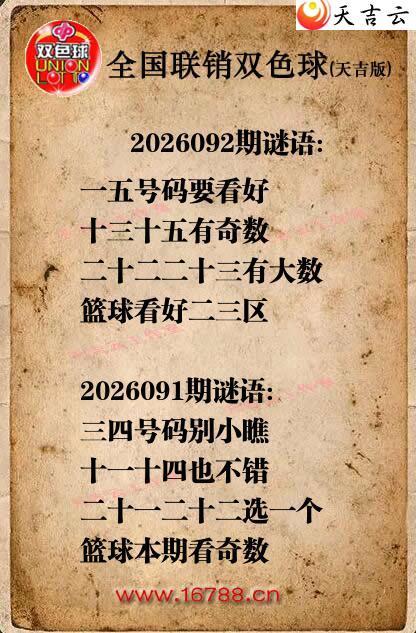 天吉云
双色球
UNION
LOTTO
全国联销双色球(天吉版)
2026092期谜语:
一五号码要看好
十三十五有奇数
二十二二十三有大数
篮球看好二三区
2026091期谜语:
三四号码别小瞧
十一十四也不错
二十一二十二选一个
篮球本期看奇数
www.16788.cn